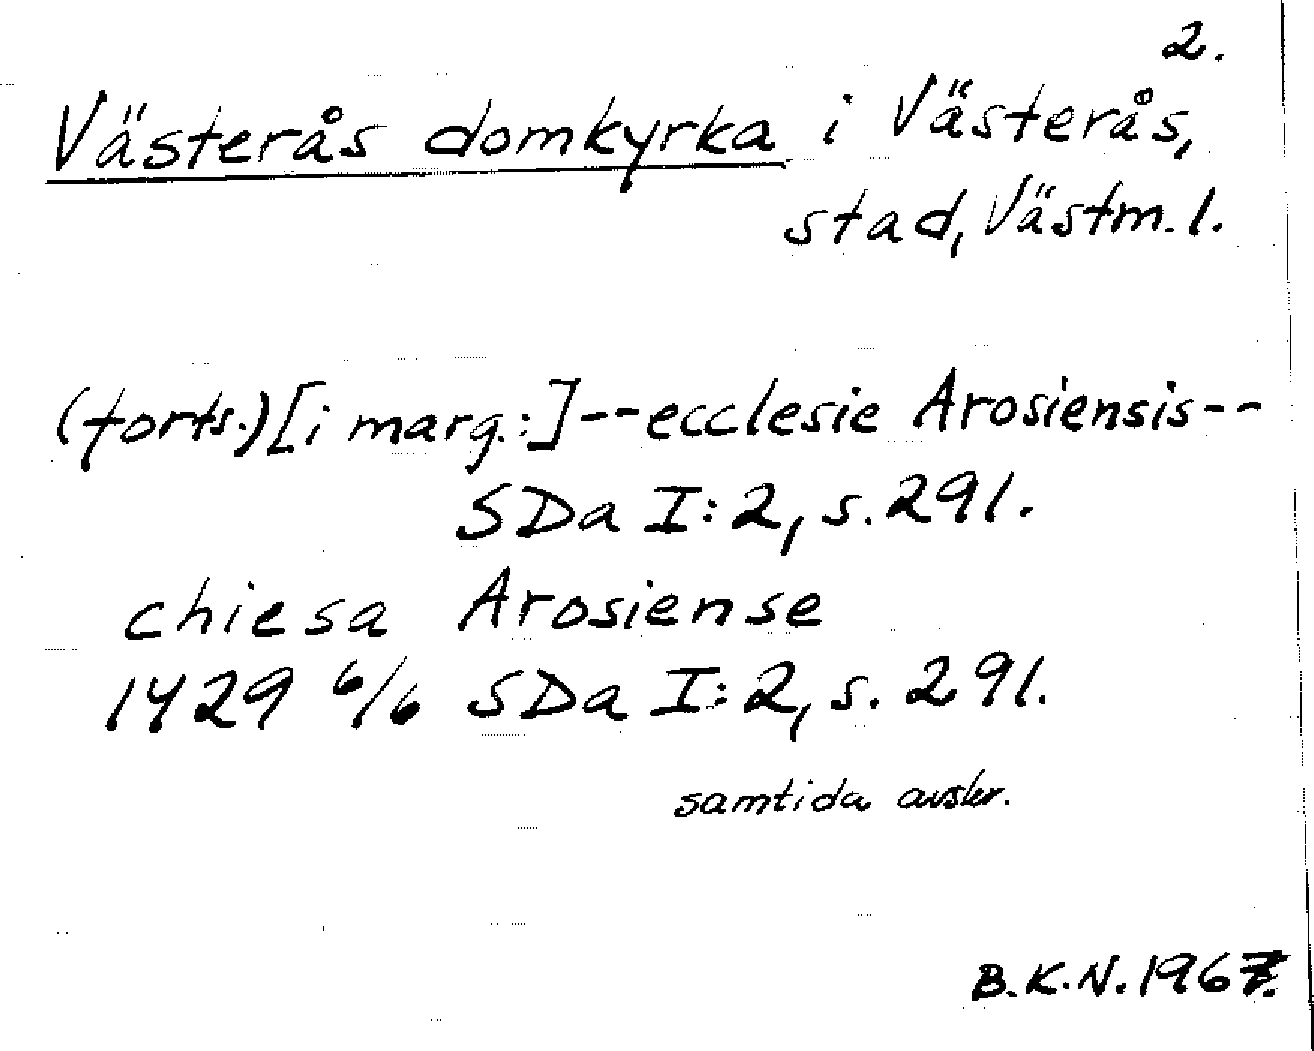 2.
Västerås domkyrka i Västerås,
stad, Västm. l.
(forts.) [i marg.:] -- ecclesie Arosiensis --
SDa I:2, s. 291.
chiesa Arosiense
1429 6/6 SDa I:2, s. 291.
samtida avskr.
B.K.N. 1967.